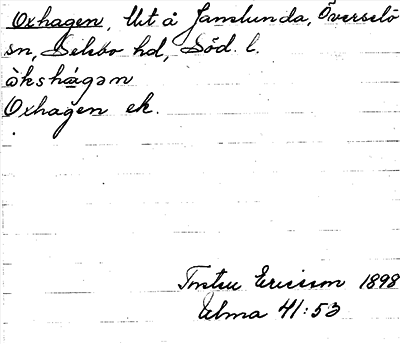 Oxhagen, lht å Janslunda, Överselö
sn, Selebo hd, Söd. l.
ò̀kshá̱gən
Oxhagen ek.
Ericsson 1898
Elma 41:53